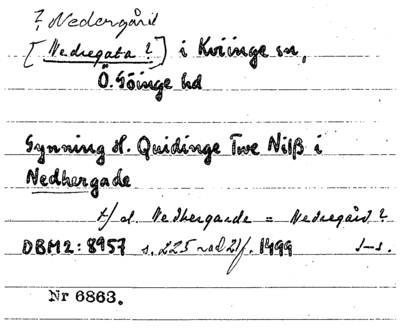 ? Nedergård
[Nedregata?] i Kviinge sn,
Ö. Göinge hd
Gynning H. Quidinge Twe Nilß i
Nedhergade
t/ d. Nedhergarde = Nedregård?
DBM2:8957 s. 225 rad 21f. 1499 J–s.
Nr 6863.